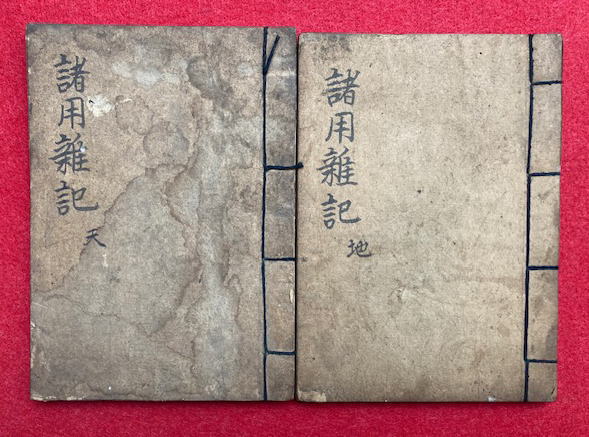 諸用雜記
天
諸用雜記
地